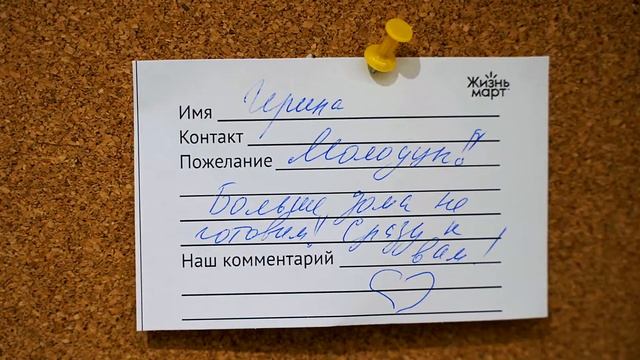 Жизнь
март
Имя Ирина
Контакт
Пожелание Молодцы!!
Больше дома не
готовим!! Сразу к
вам!
Наш комментарий